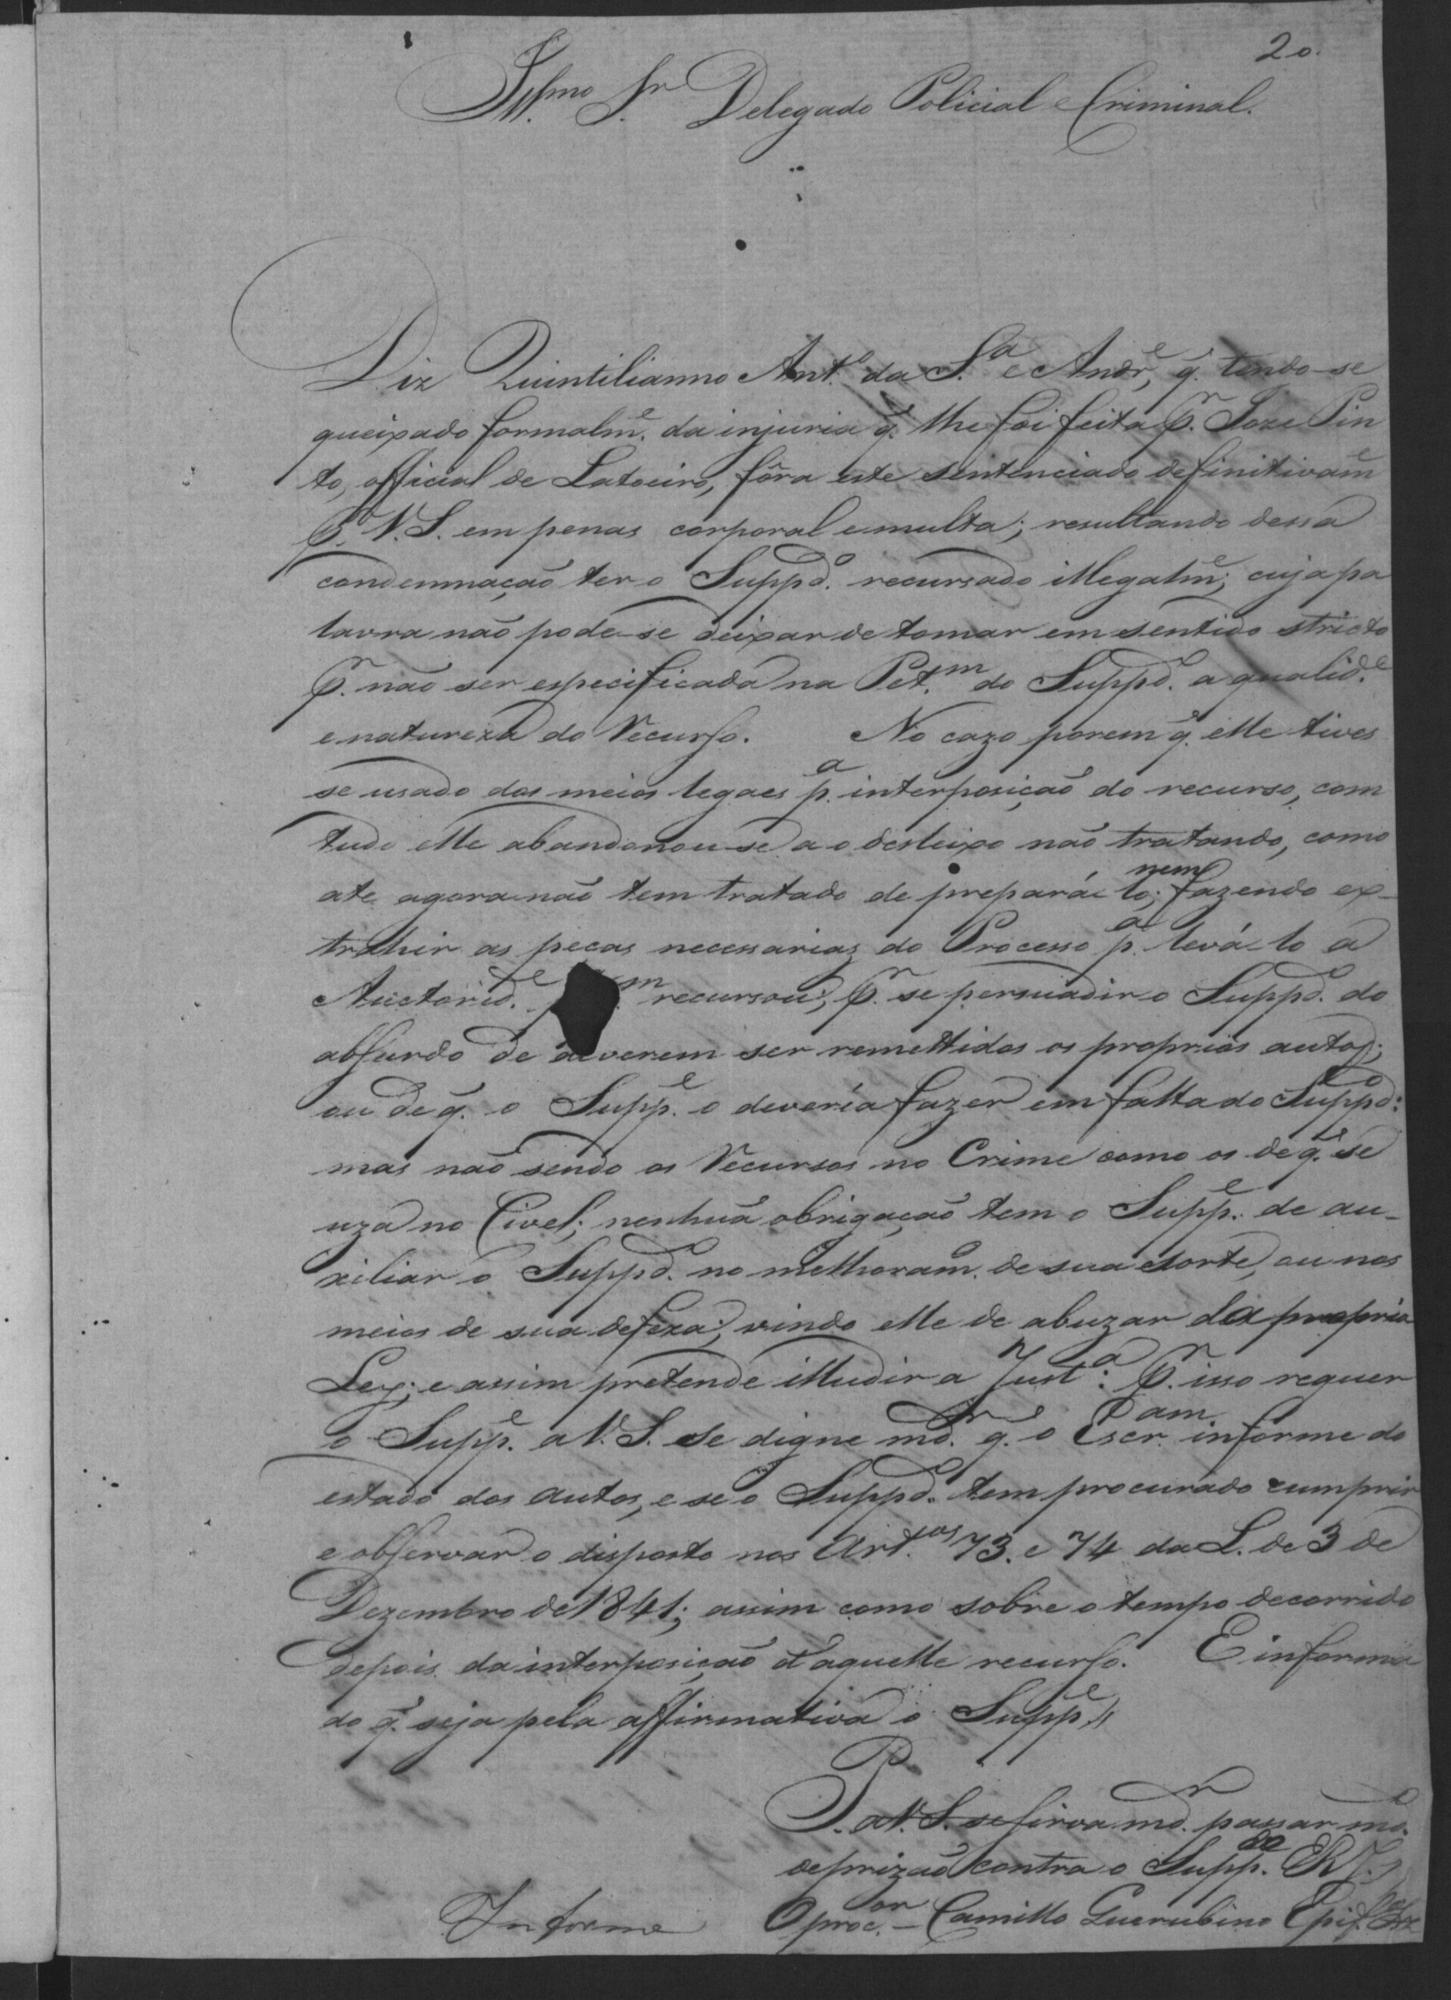 20.
Illmo Sr. Delegado Policial e Criminal.
Diz Quintilianno Ant.o da S.a e Andr.e, q. tendo-se
queixado formalm.e da injuria q. lhe foi feita p.r Joze Pin
to, official de Latoeiro, fôra este sentenciado definitivam.e
p.r V. S. em penas corporal e multa; resultando dessa
condemnação ter o Supp.do recursado illegalm.e; cuja pa
lavra não pode-se deixar de tomar em sentido stricto
p.r não ser especificada na Pet.m do Supp.do a qualid.e
e natureza do Recurso. No cazo porem q. elle tives
se usado dos meios legaes p.a interposição do recurso, com
tudo elle abandonou-se ao desleixo não tratando, como
ate agora não tem tratado de prepará-lo; nem fazendo ex-
trahir as peças necessarias do Processo p.a levá-lo a
Auctorid.e recursou; p.r se persuadir o Supp.do do
absurdo de deverem ser remettidos os proprios autos;
ou de q. o Supp.e o deveria fazer em falta do Supp.do:
mas não sendo os Recursos no Crime como os de q. se
uza no Civel; nenhuã obrigação tem o Supp.e de au-
xiliar o Supp.do no melhoram.o de sua sorte, ou nos
meios de sua defeza; vindo elle de abuzar da propria
Ley; e assim pretende illudir a Just.a: P.r isso requer
o Supp.e a V. S. se digne md.r q. o Escr.am informe do
estado dos autos, e se o Supp.do tem procurado cumprir
e observar o disposto nos Art.os 73. e 74 da L. de 3 de
Dezembro de 1841; assim como sobre o tempo decorrido
depois da interposição d'aquelle recurso. E informa
do q. seja pela affirmativa o Supp.e
P. a V. S. se sirva md.r passar md.o
de prizão contra o Supp.do E R M.
Informe O proc.or Camillo Querubino